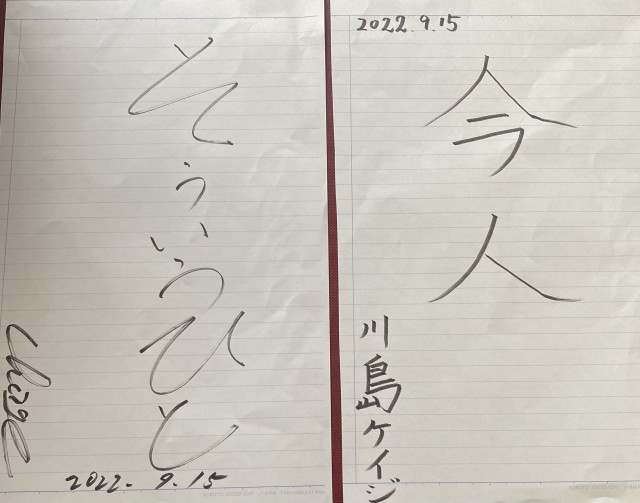 2022.9.15
今人
川島ケイジ
そういうひと
Chage
2022. 9. 15